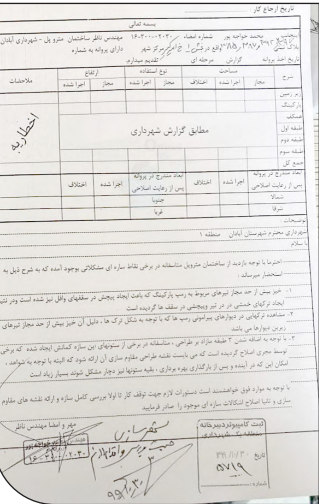 تاریخ ارجاع کار
بسمه تعالی
اینجانب محمد خواجه پور شماره اعضاء ۲۰۳۰-۳۰۰-۱۶ مهندس ناظر ساختمان مترو پل - شهرداری آبادان
دارای پروانه به شماره
تاریخ اخذ پروانه گزارش مرحله ای تقدیم میدارم.
شرح مساحت نوع استفاده ارتفاع ملاحضات
مجاز اجرا شده اختلاف مجاز اجرا شده مجاز اجرا شده
زیر زمین
پارکینگ
همکف
طبقه اول
طبقه دوم
طبقه سوم
جمع کل
مطابق گزارش شهرداری
اخطاریه
ابعاد مندرج در پروانه پس از رعایت اصلاحی اجرا شده اختلاف ابعاد مندرج در پروانه پس از رعایت اصلاحی اجرا شده اختلاف
شمالا جنوبا
شرقا غربا
توضیحات :
شهرداری محترم شهرستان آبادان منطقه ۱
با سلام
احتراما با توجه بازدید از ساختمان متروپل متاسفانه در برخی نقاط سازه ای مشکلاتی بوجود آمده که به شرح ذیل به
استحضار میرساند :
۱ - خیز بیش از حد مجاز تیرهای مربوط به رمپ پارکینگ که باعث ایجاد پیچش در سقفهای وافل نیز شده است
ایجاد ترکهای خمشی در در تیر وپیچشی در سقف ها گردیده است
۲- مشاهده ترکهایی در دیوارهای پیرامونی رمپ ها که با توجه به شکل ترک ها ، دلیل آن خیز بیش از حد مجاز تیرهای
زیرین دیوارها می باشد
۳ - با توجه به اضافه شدن ۳ طبقه مازاد بر طراحی ، متاسفانه در برخی از ستونهای این سازه کمانش ایجاد شده که برخی
توسط مجری اصلاح گردیده است که می بایست نقشه طراحی مقاوم سازی آن ارائه شود که البته با توجه به شواهد ،
امکان این که در آینده و پس از بارگذاری بهره برداری ، بقیه ستونها نیز دچار مشکل شوند بسیار زیاد است
با توجه به موارد فوق خواهشمند است دستورات لازم جهت توقف کار تا اولا بررسی کامل سازه و ارائه نقشه های مقاوم
سازی و ثانیا اصلاح اشکالات سازه ای موجود را صادر فرمایید
مهر و امضا مهندس ناظر
۱۶-۳۰۰-۰۲۰۳۰
ثبت کامپیوتر دبیرخانه
منطقه یک شهرداری
تاریخ
۵۷۱۹
شماره